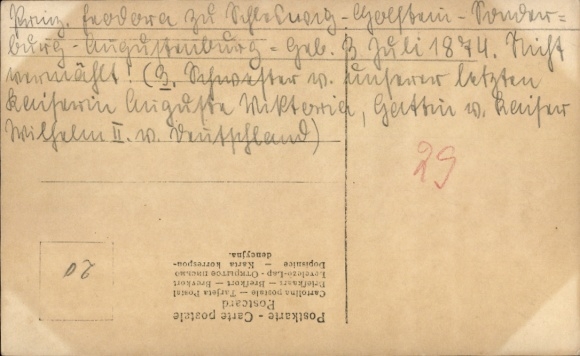 Prinz. Feodora zu Schleswig-Holstein-Sonder-
burg-Augustenburg - Geb. 3 Juli 1874. Nicht
vermählt! (3. Schwester v. unserer letzten
Kaiserin Auguste Viktoria, Gattin v. Kaiser
Wilhelm II. v. Deutschland)
29
20
Postkarte - Carte postale
Postcard
Cartolina postale — Tarjeta Postal
Briefkaart — Brefkort — Brevkort
Levelező-Lap - Открытое письмо
Dopisnice — Karta korrespon-
dencyjna.